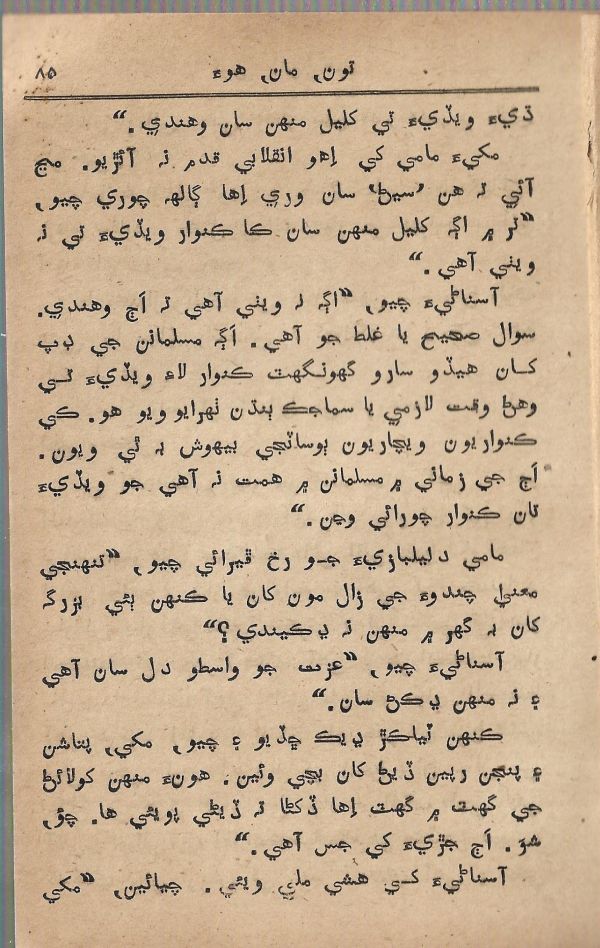 تون, مان, هوءَ ۸۵
ڏيءَ ويڏيءَ تي کليل منهن سان وهندي.“
مکيءَ مامي کي اِهو انقلابي قدم نہ آئڙيو. مڃ
آئي نہ هن ’سيڻ‘ سان وري اِها ڳالھہ چوري چيو,
”ٿر ۾ اڳ کليل منهن سان کا ڪنوار ويڏيءَ تي نہ
ويٺي آهي.“
آسناڻيءَ چيو, ”اڳ نہ ويٺي آهي تہ اَڄ وهندي.
سوال صحيح يا غلط جو آهي. اَڳ مسلمانن جي ڊپ
کان هيڏو سارو گهونگهٽ ڪنوار لاءِ ويڏيءَ تي
وهڻ وقت لازمي يا سماجڪ ٻنڌن ٺهرايو ويو هو. ڪي
ڪنواريون ويچاريون ٻوساٽجي بيهوش بہ ٿي ويون.
اَڄ جي زماني ۾ مسلمانن ۾ همت نہ آهي جو ويڏيءَ
تان ڪنوار چورائي وڃن.“
مامي دليلبازيءَ جو رخ ڦيرائي چيو, ”تنهنجي
معنيٰ چندوءَ جي زال مون کان يا ڪنهن ٻئي بزرگ
کان بہ گهر ۾ منهن نہ ڍڪيندي؟“
آسناڻيءَ چيو, ”عزت جو واسطو دل سان آهي
۽ نہ منهن ڍڪڻ سان.“
ڪنهن ٽياڪڙ ڍڪ ڇڏيو ۽ چيو, مکي, پتاشن
۽ پنجن رپين ڏيڻ کان بچي وئين. هونءَ منهن کولائڻ
جي گهٽ ۾ گهٽ اِها ڏکڻا تہ ڏيڻي پويئي ها. چؤ,
شو. اَڄ جڙيءَ کي جس آهي.“
آسناڻيءَ کي هشي ملي ويئي. چيائين, ”مکي